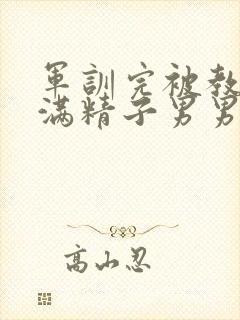 軍訓完被教
满精子男男
高山忍